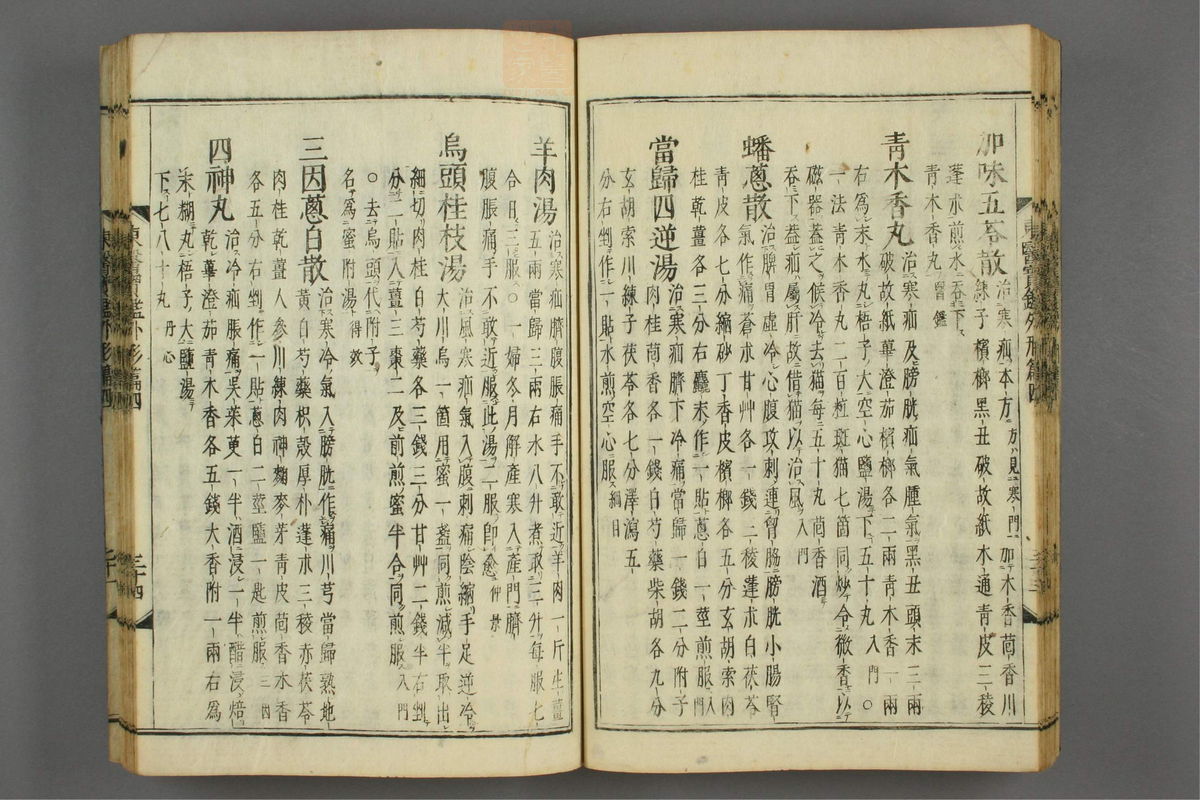 加味五苓散治寒疝本方方見寒門加木香茴香川
練子檳榔黑丑破故紙木通青皮三稜
蓬朮煎水呑下
青木香丸醫鑑
青木香丸治寒疝及膀胱疝氣腫氣黑丑頭末三兩
破故紙蓽澄茄檳榔各二兩青木香一兩
右爲末水丸梧子大空心鹽湯下五十丸入門○
一法青木香丸二百粒斑猫七箇同炒令微香以
磁器蓋之候冷去猫每五十丸茴香酒
呑下盖疝屬肝故借猫以治風入門
蟠蔥散治脾胃虛冷心腹攻刺連胷脇膀胱小腸腎
氣作痛蒼朮甘艸各一錢三稜蓬朮白茯苓
青皮各七分縮砂丁香皮檳榔各五分玄胡索肉
桂乾薑各三分右麤末作一貼蔥白一莖煎服入門
當歸四逆湯治寒疝臍下冷痛當歸一錢二分附子
肉桂茴香各一錢白芍藥柴胡各九分
玄胡索川練子茯苓各七分澤瀉五
分右剉作一貼水煎空心服綱目
東醫寶鑑外形篇四
三十三
羊肉湯治寒疝臍腹脹痛手不敢近羊肉一斤生薑
五兩當歸三兩右水八升煮取三升每服七
合日三服○一婦冬月解產寒入產門臍
腹脹痛手不敢近服此湯二服卽愈仲景
烏頭桂枝湯治風寒疝氣入腹刺痛陰縮手足逆冷
大川烏一箇用蜜一盞同煎減半取出
細切肉桂白芍藥各三錢三分甘艸二錢半右剉
分二貼入薑三棗二及前煎蜜半合同煎服入門
○去烏頭代附子
名爲蜜附湯得效
三因蔥白散治寒冷氣入膀胱作痛川芎當歸熟地
黃白芍藥枳殼厚朴蓬朮三稜赤茯苓
肉桂乾薑人參川練肉神麴麥芽青皮茴香木香
各五分右剉作一貼蔥白二莖鹽一匙煎服三因
四神丸治冷疝脹痛吳茱萸一半酒浸一半醋浸焙
乾蓽澄茄青木香各五錢大香附一兩右爲
末糊丸梧子大鹽湯
下七八十丸丹心
東醫寶鑑外形篇四
三十四